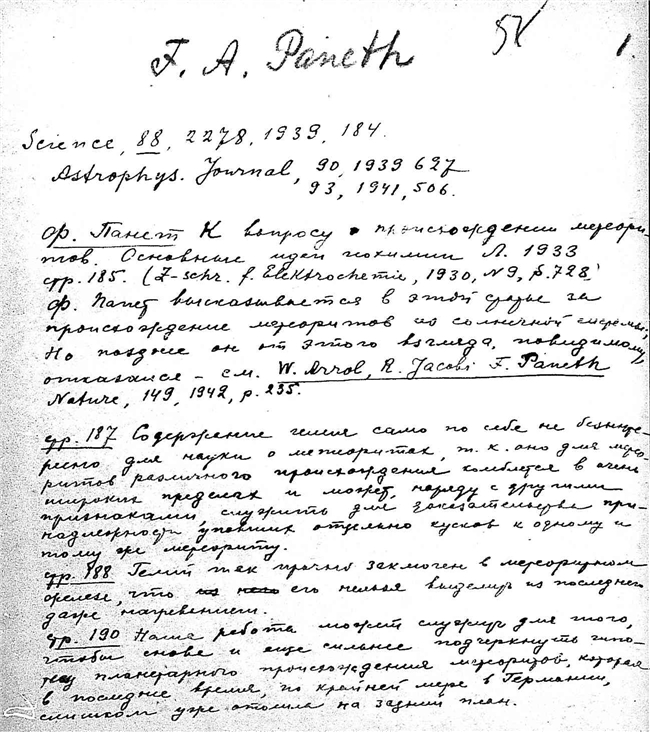 5X
1.
F. A. Paneth
Science, 88, 2278, 1939, 184.
Astrophys. Journal, 90, 1939 627
93, 1941, 506.
Ф. Панет К вопросу о происхождении метеори-
тов. Основные идеи геохимии Л. 1933
стр. 185. (Z-schr. f. Elektrochemie, 1930, N9, S. 728)
Ф. Панет высказывается в этой статье за
происхождение метеоритов из солнечной системы,
Но позднее он от этого взгляда, повидимому,
отказался – см. W. Arrol, R. Jacobi F. Paneth
Nature, 149, 1942, p. 235.
стр. 187 Содержание гелия само по себе не безинте-
ресно для науки о метеоритах, т. к. оно для метео-
ритов различного происхождения колеблется в очень
широких пределах и может, наряду с другими
признаками, служить для доказательства при-
надлежности упавших отдельно кусков к одному и
тому же метеориту.
стр. 188 Гелий так прочно заключен в метеоритном
железе, что из него его нельзя выделить из последнего
даже нагреванием.
стр. 190 Наша работа может служить для того,
чтобы снова и еще сильнее подчеркнуть гипо-
тезу планетарного происхождения метеоритов, которая
в последнее время, по крайней мере в Германии,
слишком уже отошла на задний план.